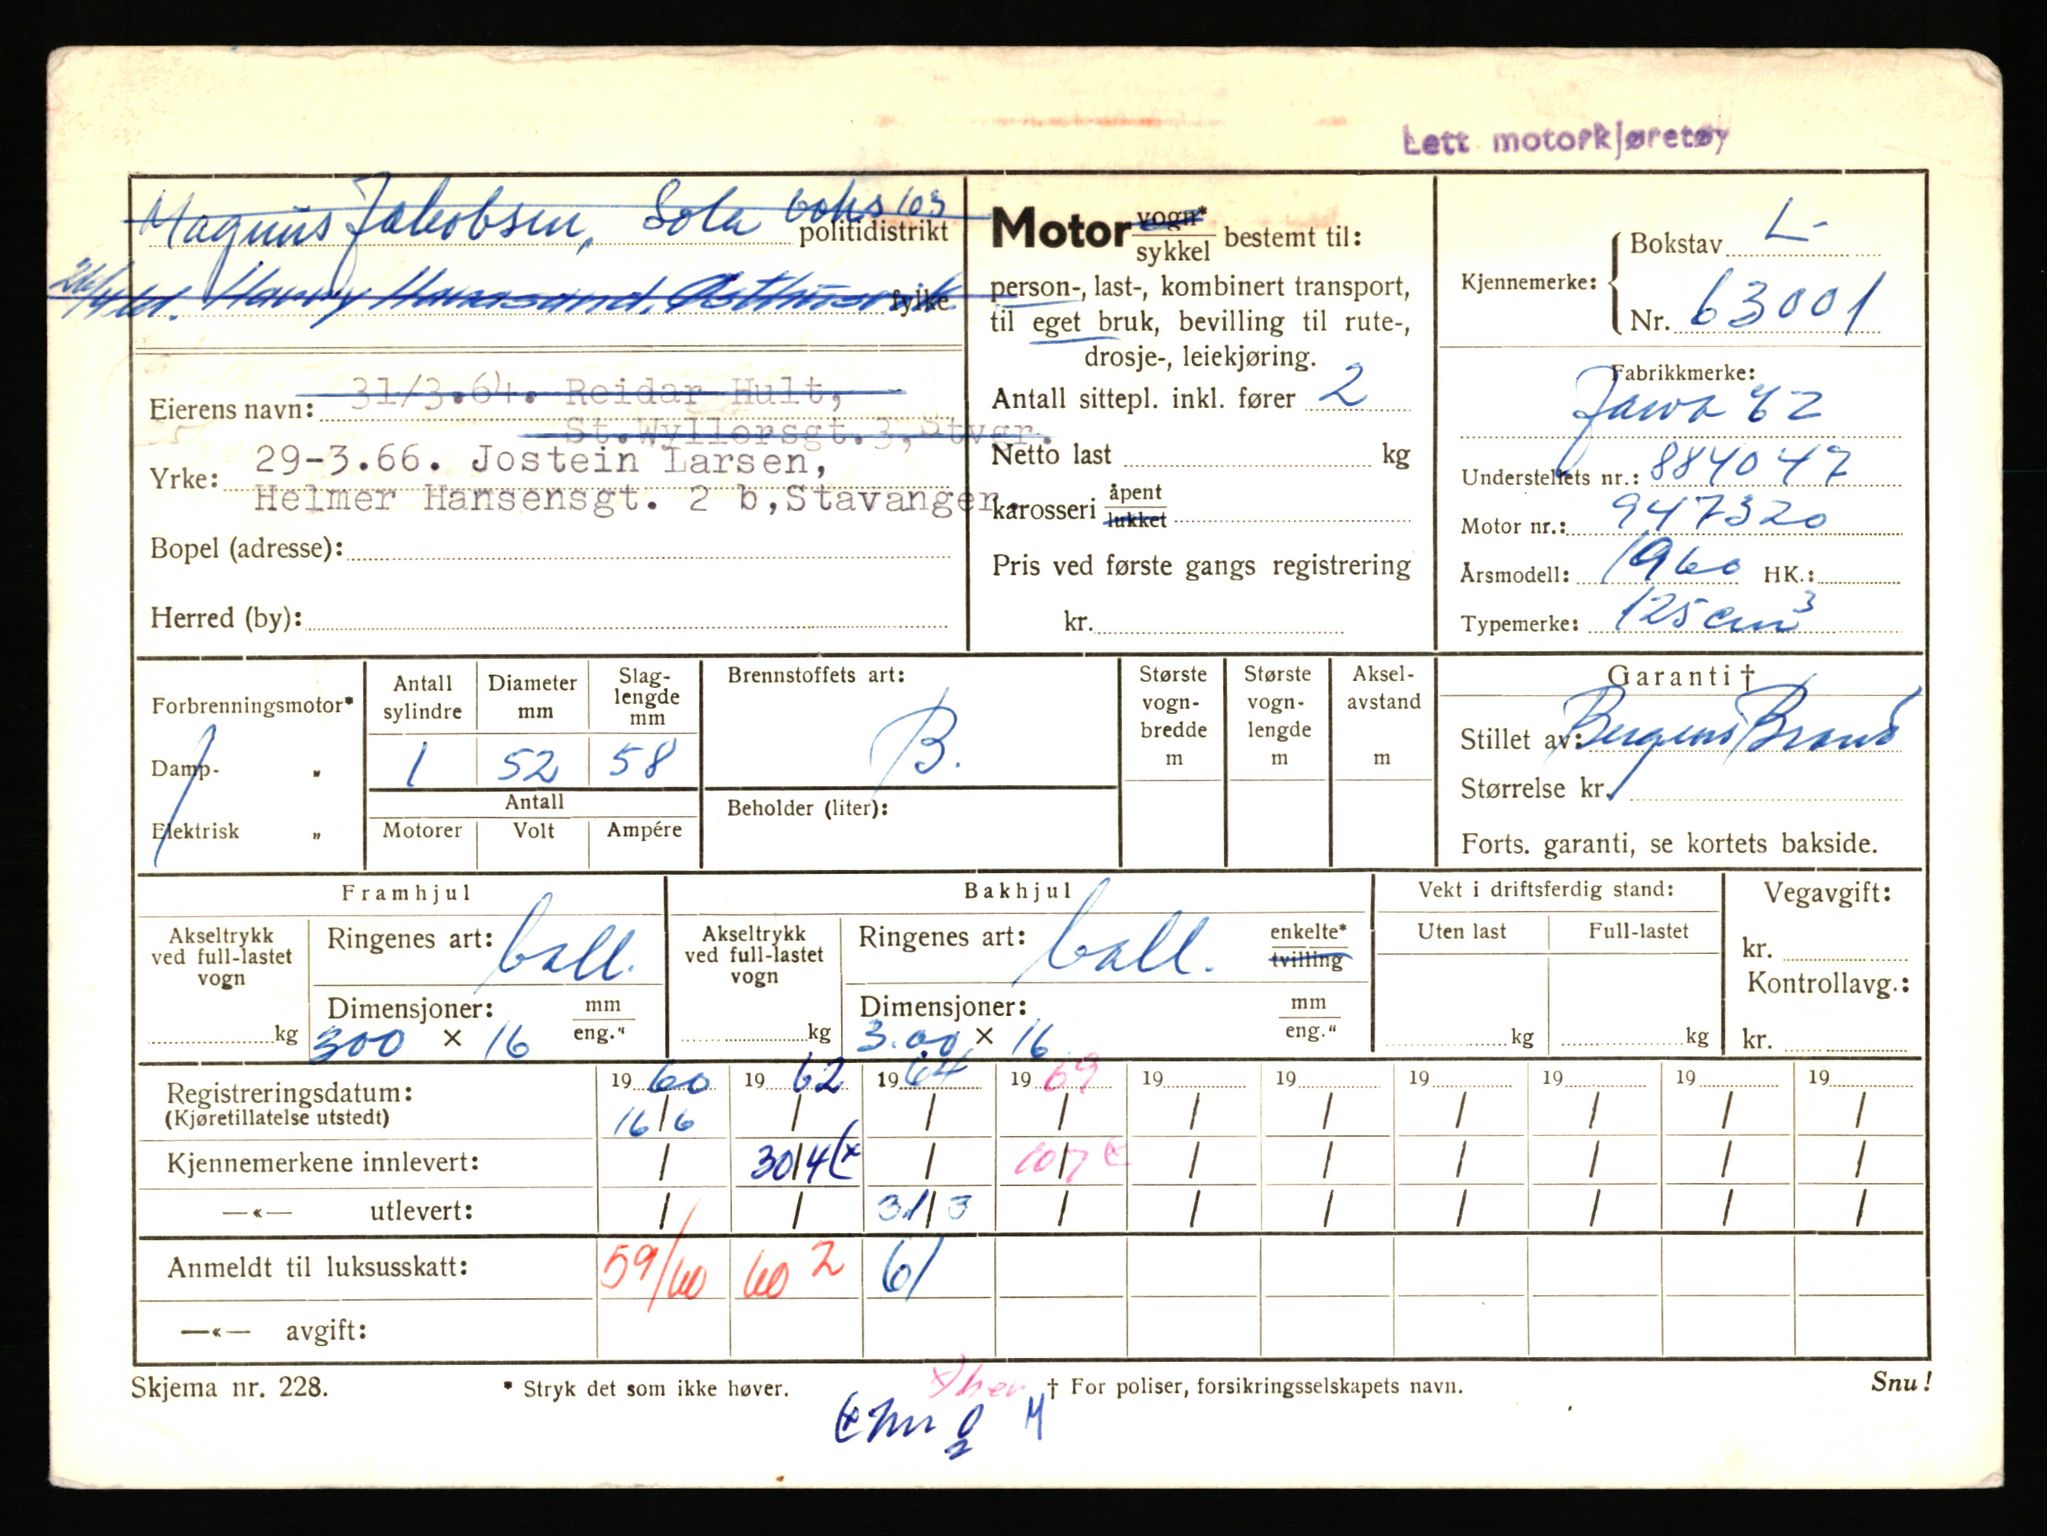 Lett motorkjøretøy
Magnus Jakobsen, Sola boks 103
politidistrikt
Harry
fylke
31/3.64. Reidar Hult,
Eierens navn:
St.Wyllorsgt.3,Stvgr.
29-3.66. Jostein Larsen,
Yrke:
Helmer Hansensgt. 2 b,Stavanger.
Bopel (adresse):
Herred (by):
Motor vogn* / sykkel bestemt til:
person-, last-, kombinert transport,
til eget bruk, bevilling til rute-,
drosje-, leiekjøring.
Antall sittepl. inkl. fører 2
Netto last kg
karosseri åpent / lukket
Pris ved første gangs registrering
kr.
Kjennemerke:
Bokstav L-
Nr. 63001
Fabrikkmerke:
Jawa
Understellets nr.: 884047
Motor nr.: 947320
Årsmodell: 1960 HK.:
Typemerke: 125 cm³
Forbrenningsmotor*
Damp- „
Elektrisk „
Antall sylindre
Diameter mm
Slag-lengde mm
1 52 58
Antall
Motorer Volt Ampére
Brennstoffets art:
B.
Beholder (liter):
Største vogn-bredde m
Største vogn-lengde m
Aksel-avstand m
Garanti †
Stillet av: Bergens Brand
Størrelse kr.
Forts. garanti, se kortets bakside.
Framhjul
Akseltrykk ved full-lastet vogn
kg
Ringenes art: ball.
Dimensjoner: mm / eng."
300 × 16
Bakhjul
Akseltrykk ved full-lastet vogn
kg
Ringenes art: ball. enkelte* / tvilling
Dimensjoner: mm / eng."
3.00 × 16
Vekt i driftsferdig stand:
Uten last Full-lastet
kg kg
Vegavgift:
kr.
Kontrollavg.:
kr.
Registreringsdatum: 19 60 19 62 19 64 19 69 19 19 19 19 19 19
(Kjøretillatelse utstedt) 16/6 / / / / / / / / /
Kjennemerkene innlevert: / 30/4 (x / 10/7 / / / / / /
—«— utlevert: / / 31/3 / / / / / / /
Anmeldt til luksusskatt: 59/60 60 2 61
—«— avgift:
Skjema nr. 228.
* Stryk det som ikke høver.
† For poliser, forsikringsselskapets navn.
Snu!